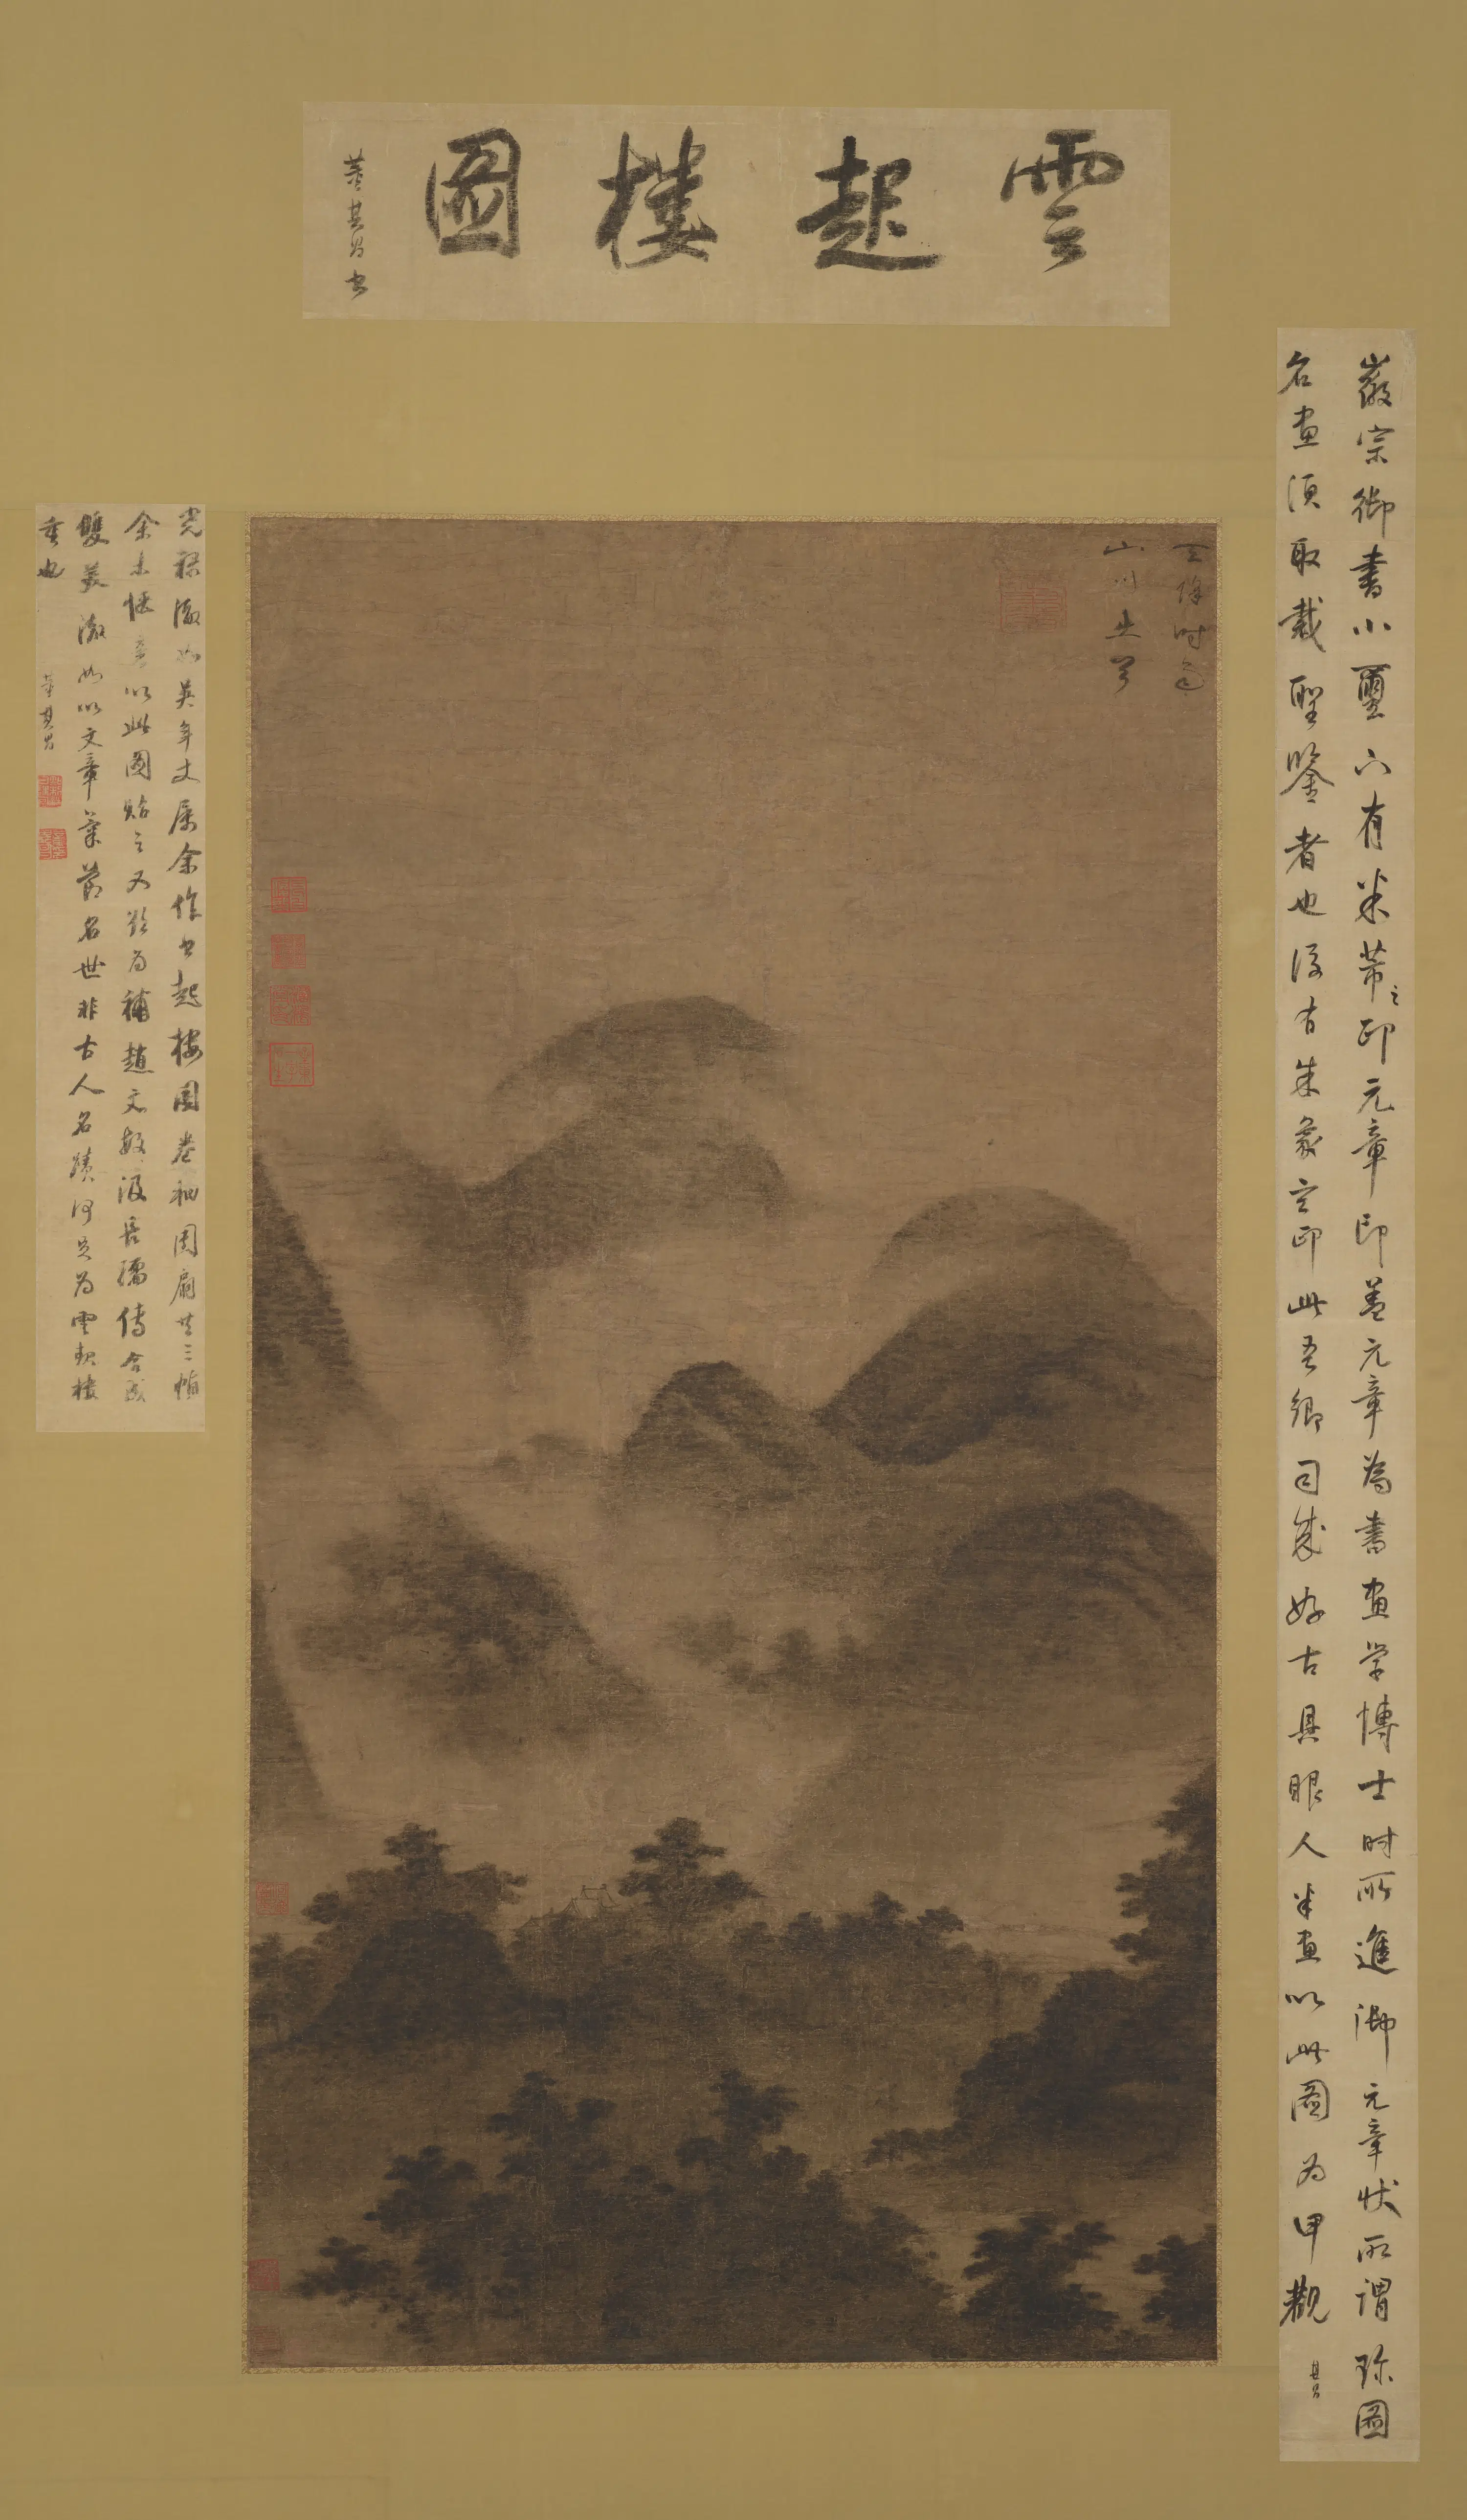 雲起樓圖
董其昌書
徽宗御書小璽亦有米芾之印元章印蓋元章為書畫學博士時所進御元章狀所謂珍圖
名畫須取裁聖鑒者也後有朱象玄印此吾鄉司成好古具眼人米畫以此圖為甲觀
其昌
天降時雨
山川出雲
光祿澂如英年丈屬余作雲起樓圖卷軸團扇共三幀
余未愜意以此圖貽之又欲為補趙文敏汲長孺傳合成
雙美澂如以文章氣節名世非古人名蹟何足為雲起樓
重也
董其昌